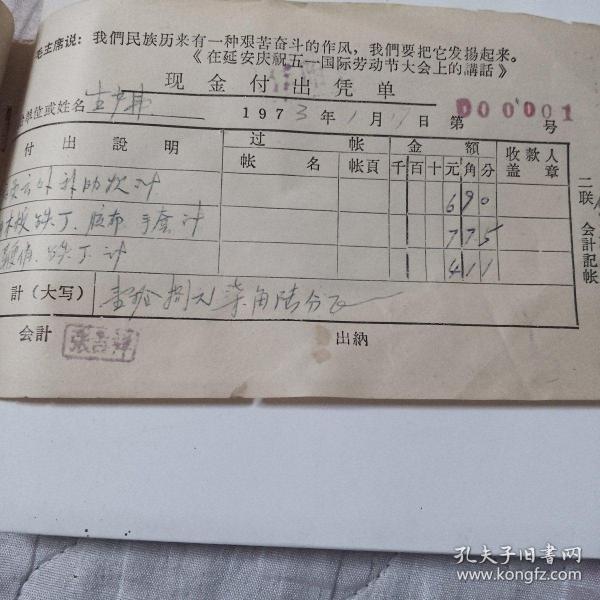 毛主席说：我們民族历来有一种艰苦奋斗的作风，我們要把它发揚起来。
《在延安庆祝五一国际劳动节大会上的講話》
现金付出凭单
单位或姓名
1973年1月 日 第 D000001 号
付出說明 过帐 金額 收款人盖章
帐名 帐頁 千百十元角分
补助 计 690
铁丁、胶布、手套 计 775
铁丁 计 411
計（大写） 壹拾捌元柒角陆分正
会計 出納
二联 会計記帐
孔夫子旧書网
www.kongfz.com